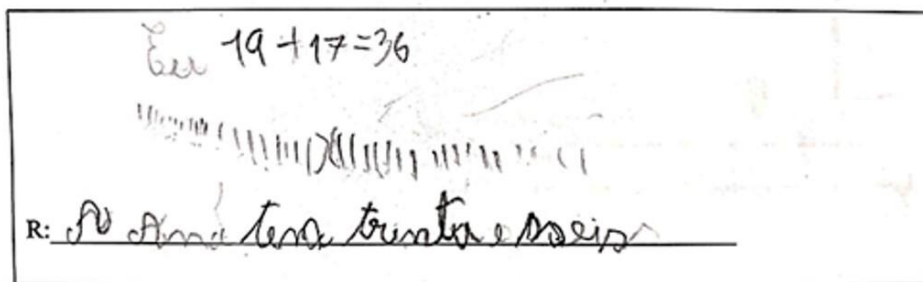 Eu 19+17=36
R: A Ana tem trinta e sseis